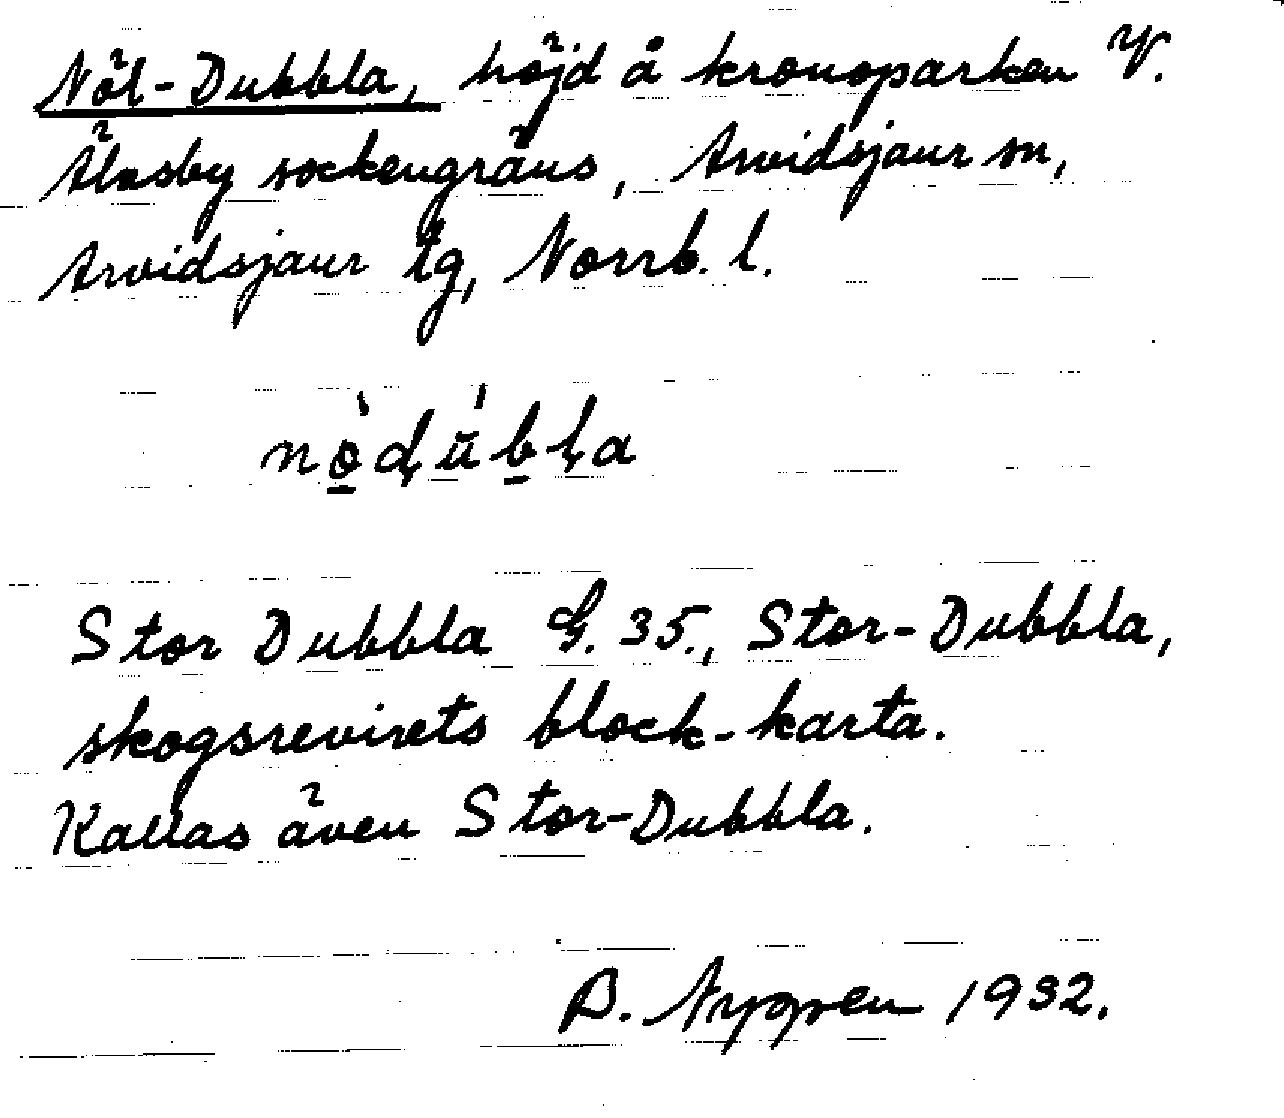 Nöl-Dubbla, höjd å kronoparken V.
Älvsby sockengräns, Arvidsjaur sn,
Arvidsjaur tg, Norrb. l.
Stor Dubbla G. 35., Stor-Dubbla,
skogsrevirets block-karta.
Kallas även Stor-Dubbla.
B. Nygren 1932.